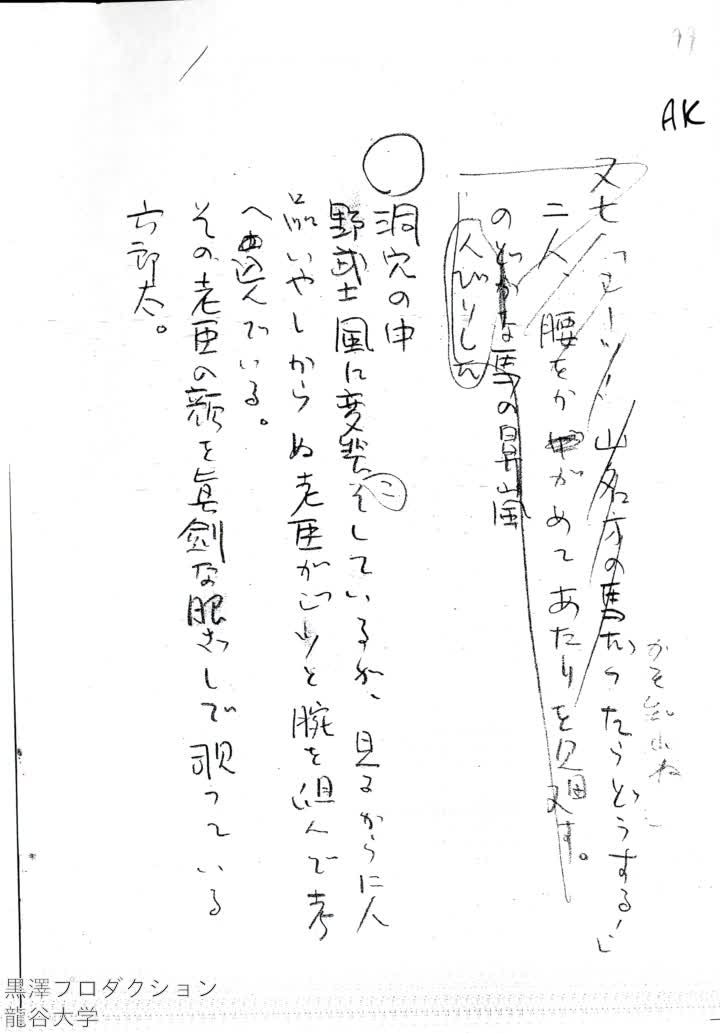 AK
又七「シーッ! 山名方の馬だったらどうする!」
二人、腰をかゞめてあたりを見廻す。
のどかな馬の鼻嵐
人びりした
洞穴の中
野武士風に変装こそしているが、見るからに人
品いやしからぬ老臣がじっと腕を組んで考
へ込んでいる。
その老臣の顔を真剣な眼ざしで覗っている
六郎太。
黒澤プロダクション
龍谷大学